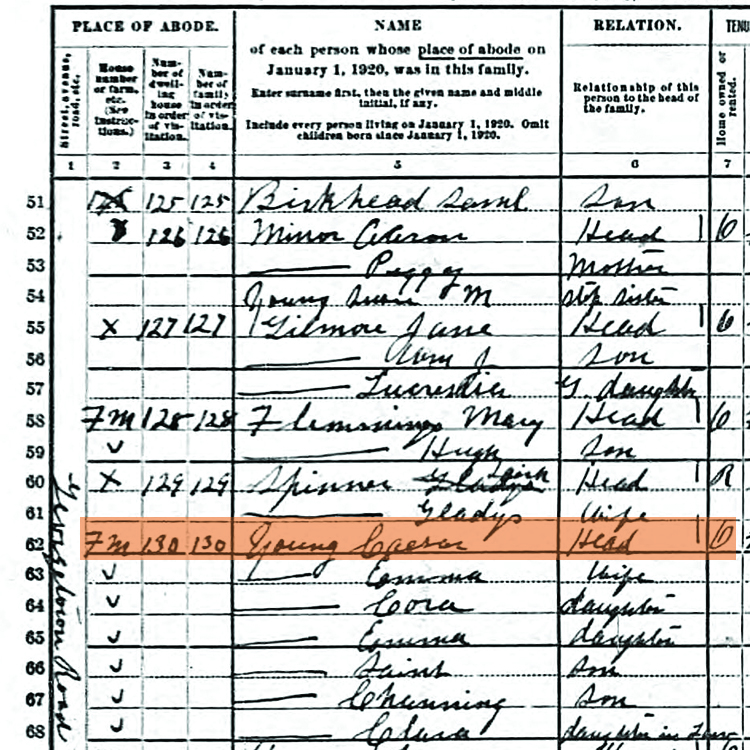 PLACE OF ABODE. NAME RELATION. TENU
of each person whose place of abode on
January 1, 1920, was in this family.
Enter surname first, then the given name and middle
initial, if any.
Include every person living on January 1, 1920. Omit
children born since January 1, 1920.
Street, avenue, road, etc.
House number or farm, etc. (See instructions.)
Number of dwelling house in order of visitation.
Number of family in order of visitation.
Relationship of this
person to the head of
the family.
Home owned or rented.
1 2 3 4 5 6 7
51 125 125 Birkhead Saml Son
52 126 126 Minor Aaron Head 1 O
53 Peggy Mother
54 Young M Step sister
55 X 127 127 Gilmore Jane Head 1 O
56 Son
57 G. daughter
58 Fm 128 128 Flemmings Mary Head 1 O
59 ✓ Hugh Son
60 X 129 129 Spinner Head 1 R
61 Gladys Wife
62 Fm 130 130 Young Caesar Head 1 O
63 ✓ Emma Wife
64 ✓ Cora daughter
65 ✓ Emma daughter
66 ✓ Saint Son
67 ✓ Channing Son
68 ✓ Clara daughter in Law
Georgetown Road